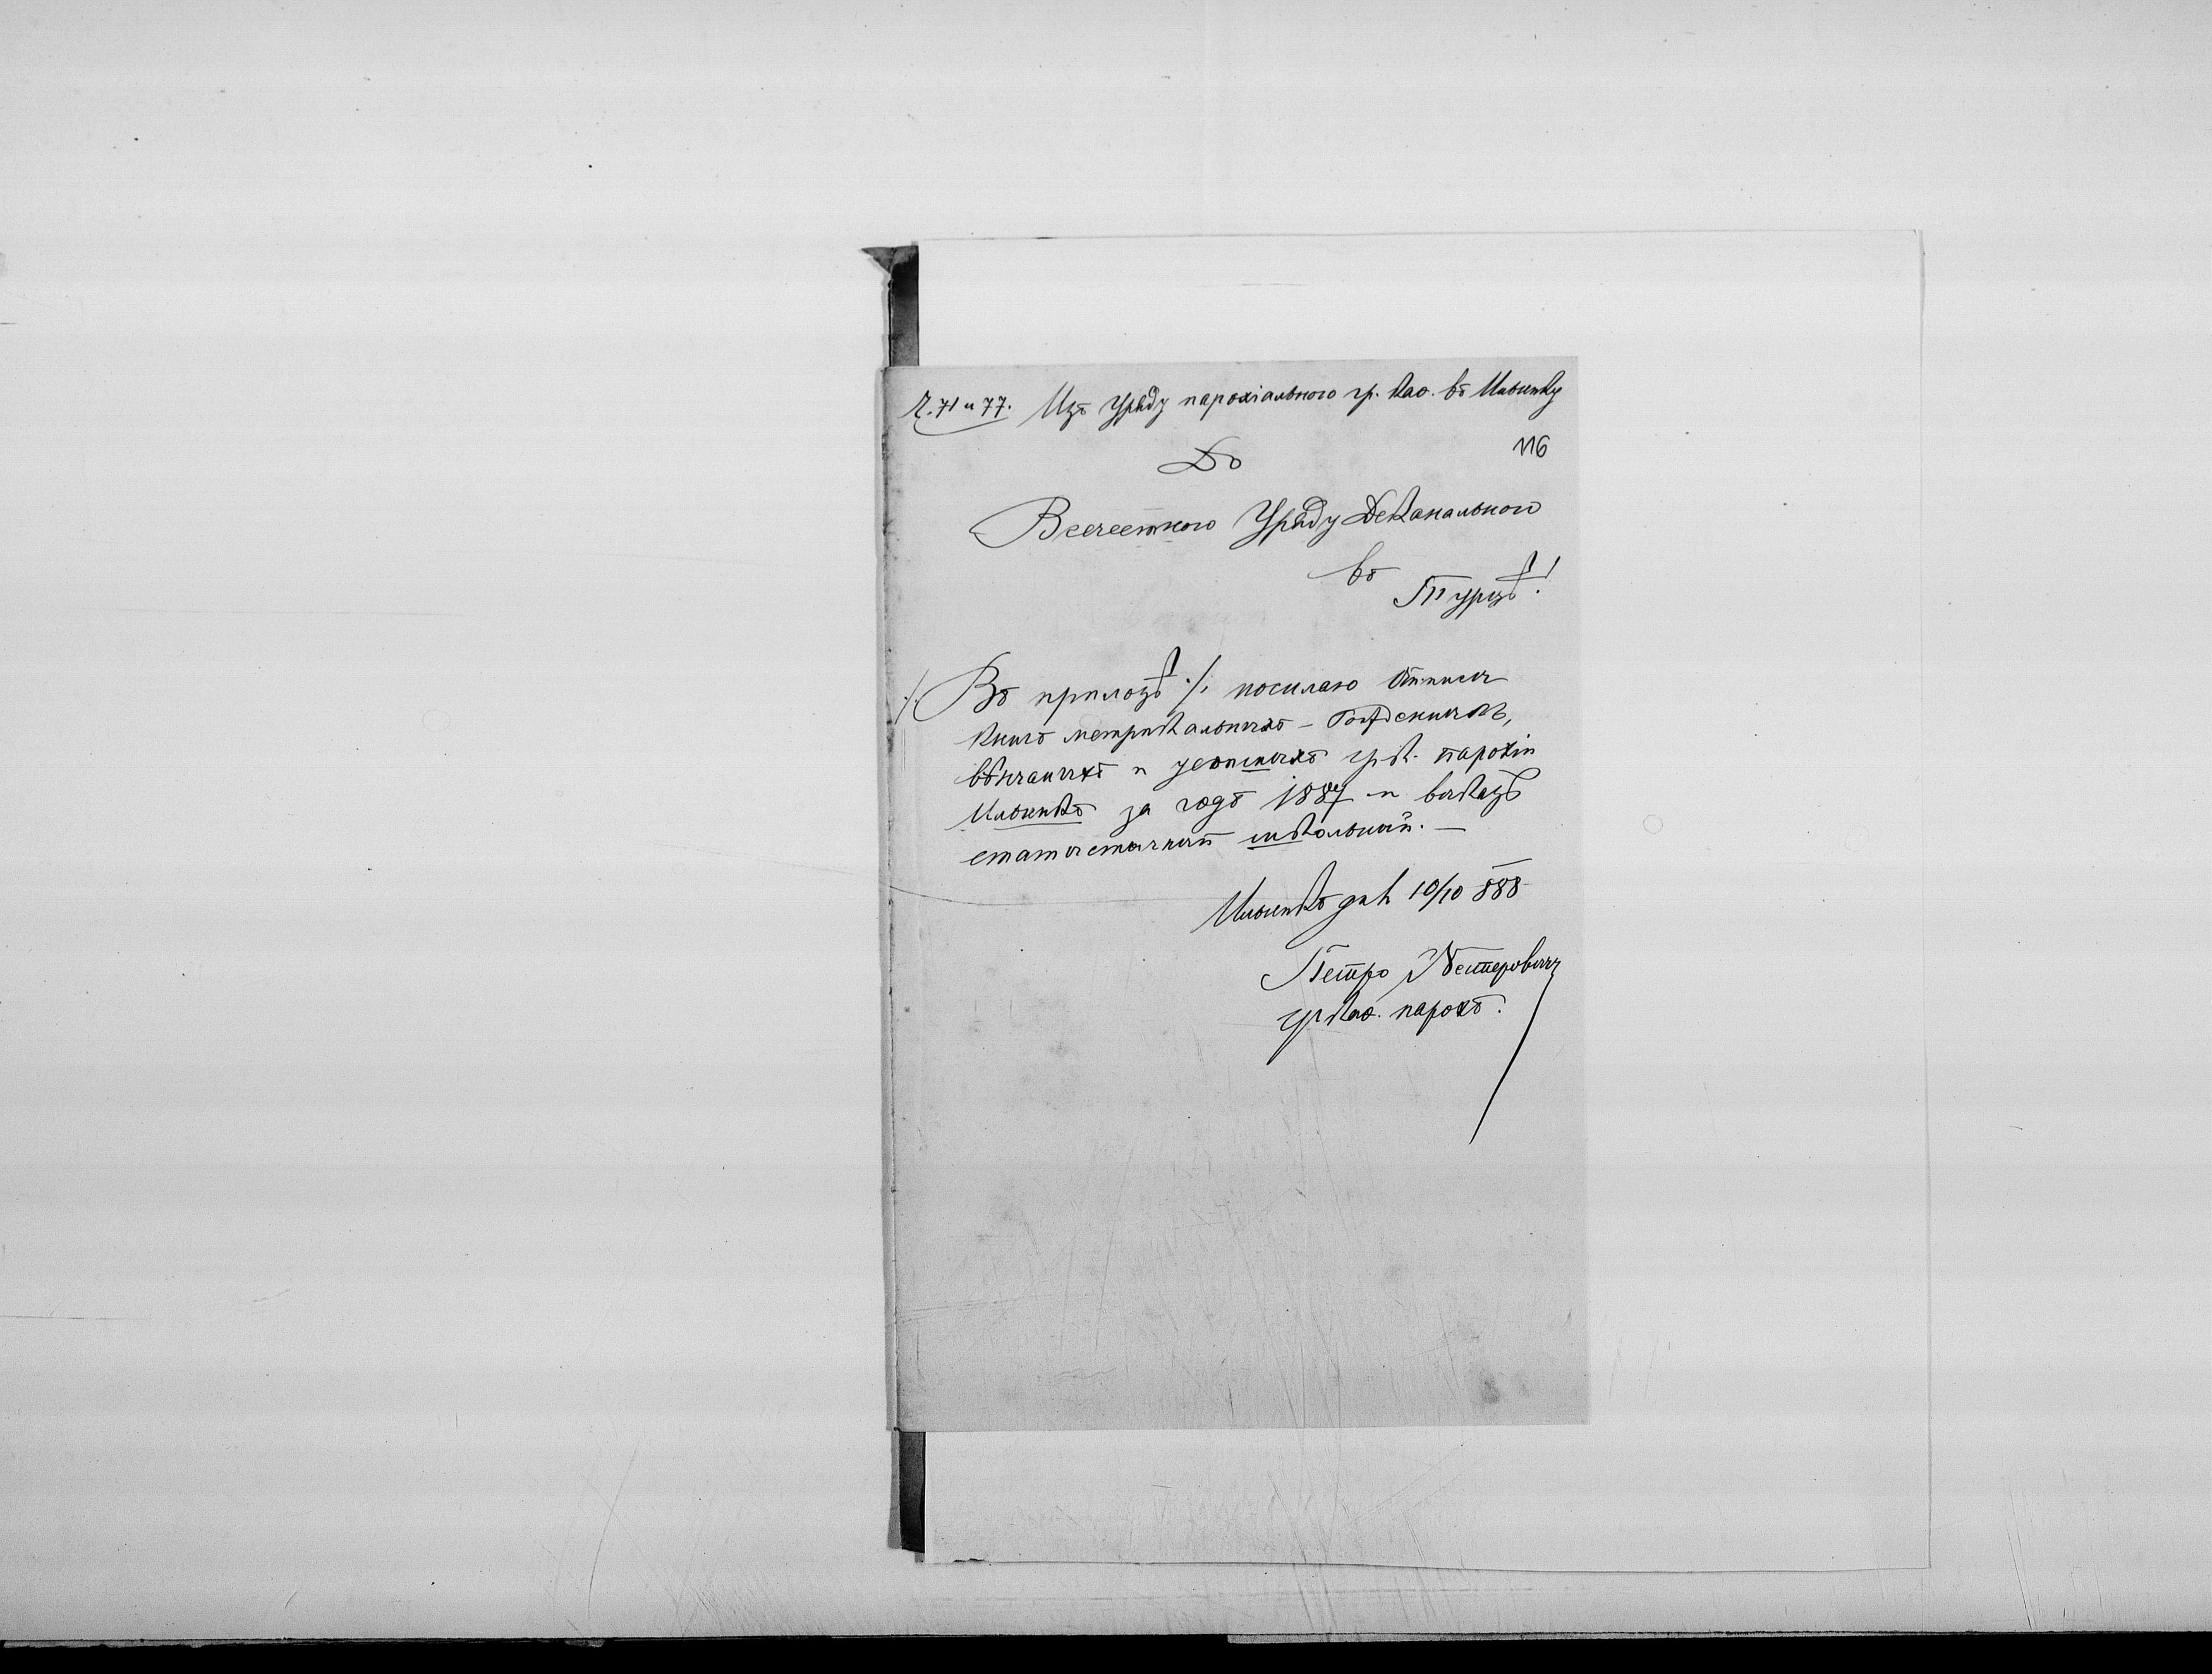 Ч. 71 и 77. Изъ Уряду парохіального гр. каѳ. въ Ильнику
116
До
Всечестного Уряду Деканального
въ
Турцѣ!
./. Въ прилозѣ ./. посилаю Отписи
книгъ метрикальныхъ – Рожденныхъ,
вѣнчаныхъ и усопшыхъ гр. к. парохіи
Ильникъ за годъ 1887 и выказъ
статистичный школьный. —
Ильникъ дня 10/10 888
Петро Нестеровичъ
гр. каѳ. парохъ.